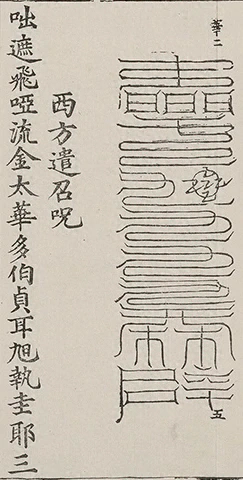 華二
五
西方遣召呪
咄遮飛啞流金太華多伯貞耳旭執圭耶三